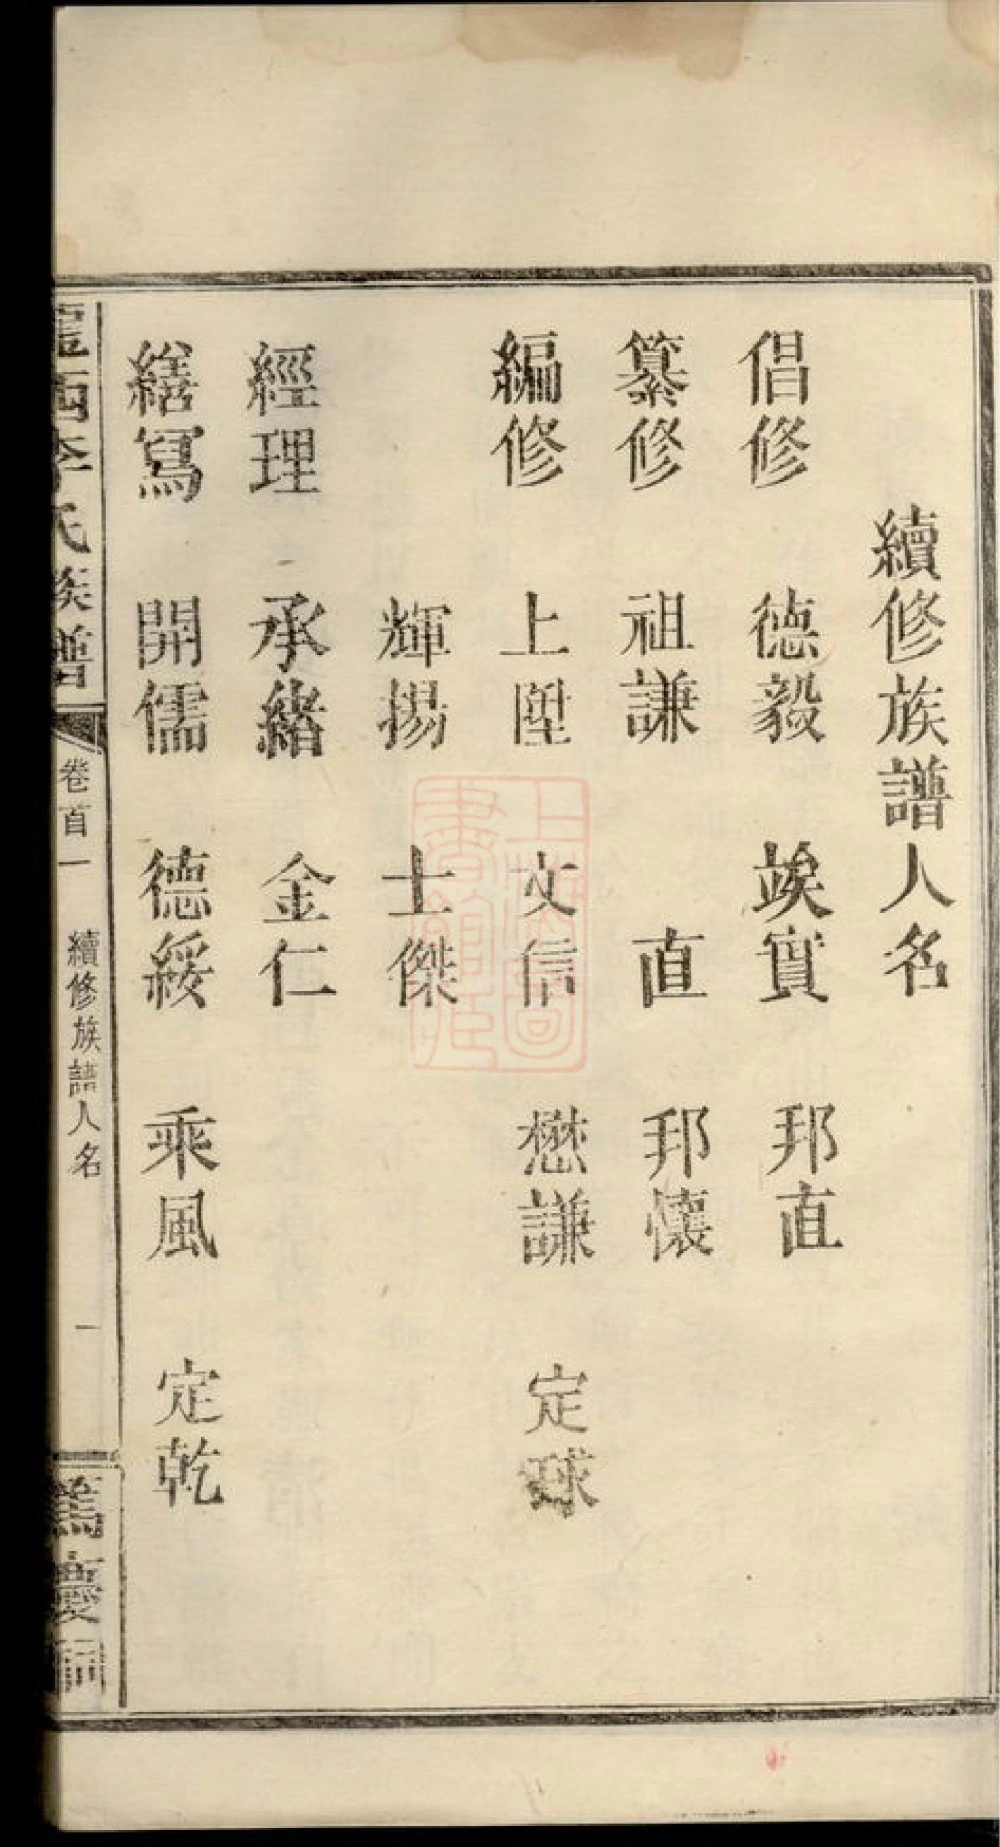 續修族譜人名
倡修　德毅　竢實　邦直
纂修　祖謙　直　邦懷
編修　上陞　文信　懋謙　定球
輝揚　士傑
經理　承緒　金仁
繕寫　開儒　德綏　乘風　定乾
隴西李氏族譜　卷首一　續修族譜人名　一
上海圖書館藏